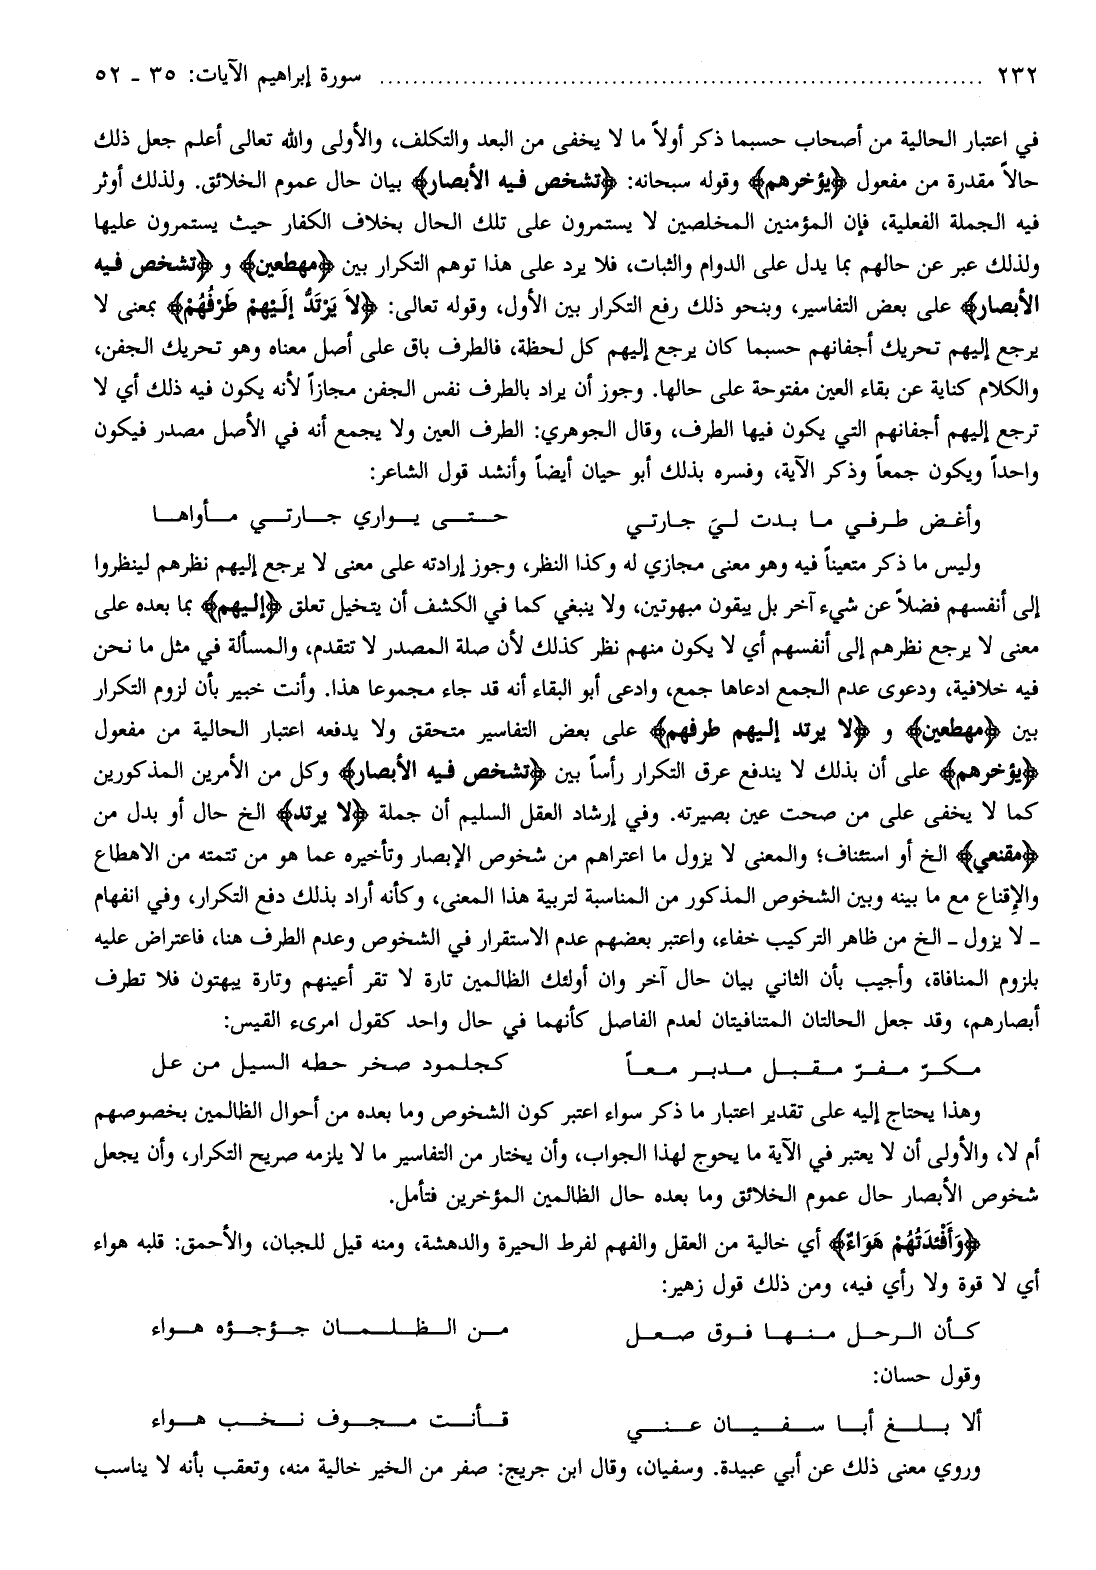 ٢٣٢ ........ سورة إبراهيم الآيات: ٣٥ ـ ٥٢
في اعتبار الحالية من أصحاب حسبما ذكر أولاً ما لا يخفى من البعد والتكلف، والأولى والله تعالى أعلم جعل ذلك
حالاً مقدرة من مفعول ﴿يؤخرهم﴾ وقوله سبحانه: ﴿تشخص فيه الأبصار﴾ بيان حال عموم الخلائق. ولذلك أوثر
فيه الجملة الفعلية، فإن المؤمنين المخلصين لا يستمرون على تلك الحال بخلاف الكفار حيث يستمرون عليها
ولذلك عبر عن حالهم بما يدل على الدوام والثبات، فلا يرد على هذا توهم التكرار بين ﴿مهطعين﴾ و ﴿تشخص فيه
الأبصار﴾ على بعض التفاسير، وبنحو ذلك رفع التكرار بين الأول، وقوله تعالى: ﴿لاَ يَرْتَدُّ إِلَيْهِمْ طَرْفُهُمْ﴾ بمعنى لا
يرجع إليهم تحريك أجفانهم حسبما كان يرجع إليهم كل لحظة، فالطرف باق على أصل معناه وهو تحريك الجفن،
والكلام كناية عن بقاء العين مفتوحة على حالها. وجوز أن يراد بالطرف نفس الجفن مجازاً لأنه يكون فيه ذلك أي لا
ترجع إليهم أجفانهم التي يكون فيها الطرف، وقال الجوهري: الطرف العين ولا يجمع أنه في الأصل مصدر فيكون
واحداً ويكون جمعاً وذكر الآية، وفسره بذلك أبو حيان أيضاً وأنشد قول الشاعر:
وأغض طرفي ما بدت ليَ جارتي حتى يواري جارتي مأواها
وليس ما ذكر متعيناً فيه وهو معنى مجازي له وكذا النظر، وجوز إرادته على معنى لا يرجع إليهم نظرهم لينظروا
إلى أنفسهم فضلاً عن شيء آخر بل يبقون مبهوتين، ولا ينبغي كما في الكشف أن يتخيل تعلق ﴿إليهم﴾ بما بعده على
معنى لا يرجع نظرهم إلى أنفسهم أي لا يكون منهم نظر كذلك لأن صلة المصدر لا تتقدم، والمسألة في مثل ما نحن
فيه خلافية، ودعوى عدم الجمع ادعاها جمع، وادعى أبو البقاء أنه قد جاء مجموعا هذا. وأنت خبير بأن لزوم التكرار
بين ﴿مهطعين﴾ و ﴿لا يرتد إليهم طرفهم﴾ على بعض التفاسير متحقق ولا يدفعه اعتبار الحالية من مفعول
﴿يؤخرهم﴾ على أن بذلك لا يندفع عرق التكرار رأساً بين ﴿تشخص فيه الأبصار﴾ وكل من الأمرين المذكورين
كما لا يخفى على من صحت عين بصيرته. وفي إرشاد العقل السليم أن جملة ﴿لا يرتد﴾ الخ حال أو بدل من
﴿مقنعي﴾ الخ أو استئناف؛ والمعنى لا يزول ما اعتراهم من شخوص الإبصار وتأخيره عما هو من تتمته من الاهطاع
والإِقناع مع ما بينه وبين الشخوص المذكور من المناسبة لتربية هذا المعنى، وكأنه أراد بذلك دفع التكرار، وفي انفهام
ـ لا يزول ـ الخ من ظاهر التركيب خفاء، واعتبر بعضهم عدم الاستقرار في الشخوص وعدم الطرف هنا، فاعتراض عليه
بلزوم المنافاة، وأجيب بأن الثاني بيان حال آخر وان أولئك الظالمين تارة لا تقر أعينهم وتارة يبهتون فلا تطرف
أبصارهم، وقد جعل الحالتان المتنافيتان لعدم الفاصل كأنهما في حال واحد كقول امرىء القيس:
مكرّ مفرّ مقبل مدبر معاً كجلمود صخر حطه السيل من عل
وهذا يحتاج إليه على تقدير اعتبار ما ذكر سواء اعتبر كون الشخوص وما بعده من أحوال الظالمين بخصوصهم
أم لا، والأولى أن لا يعتبر في الآية ما يحوج لهذا الجواب، وأن يختار من التفاسير ما لا يلزمه صريح التكرار، وأن يجعل
شخوص الأبصار حال عموم الخلائق وما بعده حال الظالمين المؤخرين فتأمل.
﴿وَأَفْئدَتُهُمْ هَوَاءٌ﴾ أي خالية من العقل والفهم لفرط الحيرة والدهشة، ومنه قيل للجبان، والأحمق: قلبه هواء
أي لا قوة ولا رأي فيه، ومن ذلك قول زهير:
كأن الرحل منها فوق صعل من الظلمان جؤجؤه هواء
وقول حسان:
ألا بلغ أبا سفيان عني فأنت مجوف نخب هواء
وروي معنى ذلك عن أبي عبيدة. وسفيان، وقال ابن جريج: صفر من الخير خالية منه، وتعقب بأنه لا يناسب